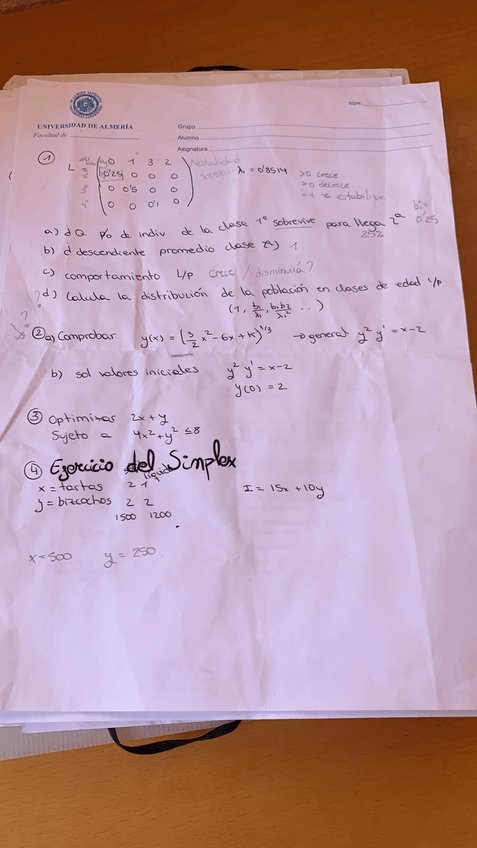 UNIVERSIDAD DE ALMERÍA
Facultad de
Núm.
Grupo
Alumno
Asignatura
1
L
0 1 3 2
0'25 0 0 0
0 0'5 0 0
0 0 0'1 0
Natalidad
λ₁ = 0'8514
>0 crece
>0 decrece
=1 se estabiliza
a) d Q p/o de indiv de la clase 1ª sobrevive para llega 2ª
25%
b1=
0'25
b) d descendiente promedio clase 2ª) 1
c) comportamiento L/p crece / disminuiría?
d) Calcula la distribución de la población en clases de edad L/p
(1, b₁/λ₁, b₁b₂/λ₁² ...)
2 a) Comprobar y(x) = (3/2 x² - 6x + K)^1/3 → general y² y' = x-2
b) sol valores iniciales y² y' = x-2
y(0) = 2
3 Optimizar 2x + y
Sujeto a 4x² + y² ≤ 8
4 Ejercicio del Simplex
liquid
x = tartas 2 1
I = 15x + 10y
y = bizcochos 2 2
1500 1200
x = 500 y = 250